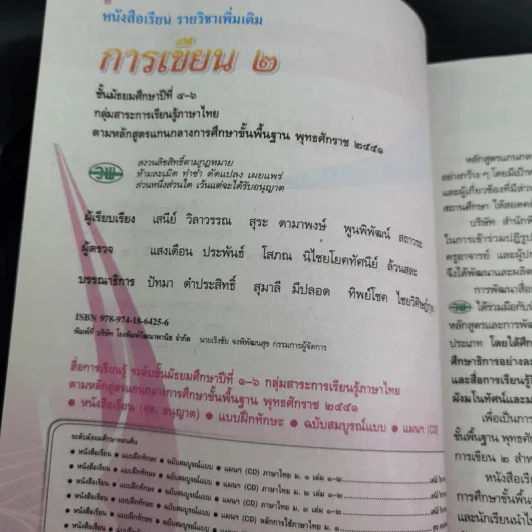 หนังสือเรียน รายวิชาเพิ่มเติม
การเขียน ๒
ชั้นมัธยมศึกษาปีที่ ๔-๖
กลุ่มสาระการเรียนรู้ภาษาไทย
ตามหลักสูตรแกนกลางการศึกษาขั้นพื้นฐาน พุทธศักราช ๒๕๕๑
สงวนลิขสิทธิ์ตามกฎหมาย
ห้ามละเมิด ทำซ้ำ ดัดแปลง เผยแพร่
ส่วนหนึ่งส่วนใด เว้นแต่จะได้รับอนุญาต
ผู้เรียบเรียง เสนีย์ วิลาวรรณ สุระ ดามาพงษ์ พูนพิพัฒน์ สถาวระ
ผู้ตรวจ แสงเดือน ประพันธ์ โสภณ นิไชยโยคทัศนีย์ ล้วนสละ
บรรณาธิการ ปัทมา ดำประสิทธิ์ สุมาลี มีปลอด ทิพย์โชค
ISBN 978-974-18-6425-6
พิมพ์ที่ บริษัท โรงพิมพ์วัฒนาพานิช จำกัด นายเริงชัย จงพิพัฒนสุข กรรมการผู้จัดการ
สื่อการเรียนรู้ ระดับชั้นมัธยมศึกษาปีที่ ๑-๖ กลุ่มสาระการเรียนรู้ภาษาไทย
ตามหลักสูตรแกนกลางการศึกษาขั้นพื้นฐาน พุทธศักราช ๒๕๕๑
• หนังสือเรียน (ศธ. อนุญาต) • แบบฝึกทักษะ • ฉบับสมบูรณ์แบบ • แผนฯ (CD)
ระดับมัธยมศึกษาตอนต้น
• หนังสือเรียน • แบบฝึกทักษะ • ฉบับสมบูรณ์แบบ • แผนฯ (CD) ภาษาไทย ม. ๑ เล่ม ๑-๒
• หนังสือเรียน • แบบฝึกทักษะ • ฉบับสมบูรณ์แบบ • แผนฯ (CD) ภาษาไทย ม. ๒ เล่ม ๑-๒
• หนังสือเรียน • แบบฝึกทักษะ • ฉบับสมบูรณ์แบบ • แผนฯ (CD) ภาษาไทย ม. ๓ เล่ม ๑-๒
• หนังสือเรียน • แบบฝึกทักษะ • ฉบับสมบูรณ์แบบ • แผนฯ (CD) หลักการใช้ภาษาไทย ม. ๑
หลักสูตรแกนกลาง
อย่างกว้าง ๆ โดยมีเป้า
และผู้เกี่ยวข้องที่มีส่วน
สถานศึกษา ให้สอดคล้
บริษัท สำนักพิ
ในการเข้าร่วมปฏิรูป
ครูอาจารย์ และผู้ป
จึงได้พัฒนาและผลิต
การพัฒนาสื่อ
ได้ร่วมมือกับ
หลักสูตรและการพั
ประเภท โดยได้ศึก
ศึกษาธิการอย่างละ
และสื่อการเรียนรู้
ผังมโนทัศน์และม
เพื่อเป็นการ
ขั้นพื้นฐาน พุทธศั
การเขียน ๒ สำห
หนังสือเรี
การศึกษาขั้นพื้น
และนักเรียนนำ